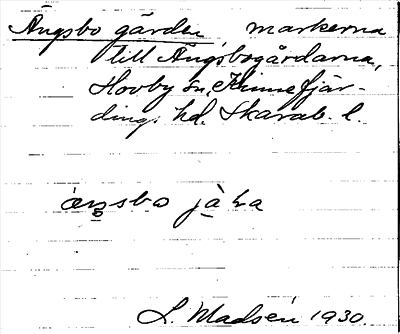 Ängsbo gärden, markerna
till Ängsbogårdarna,
Hovby sn, Kinnefjär-
ding. hd. Skarab. l.
æŋsbo
L. Madsén 1930.